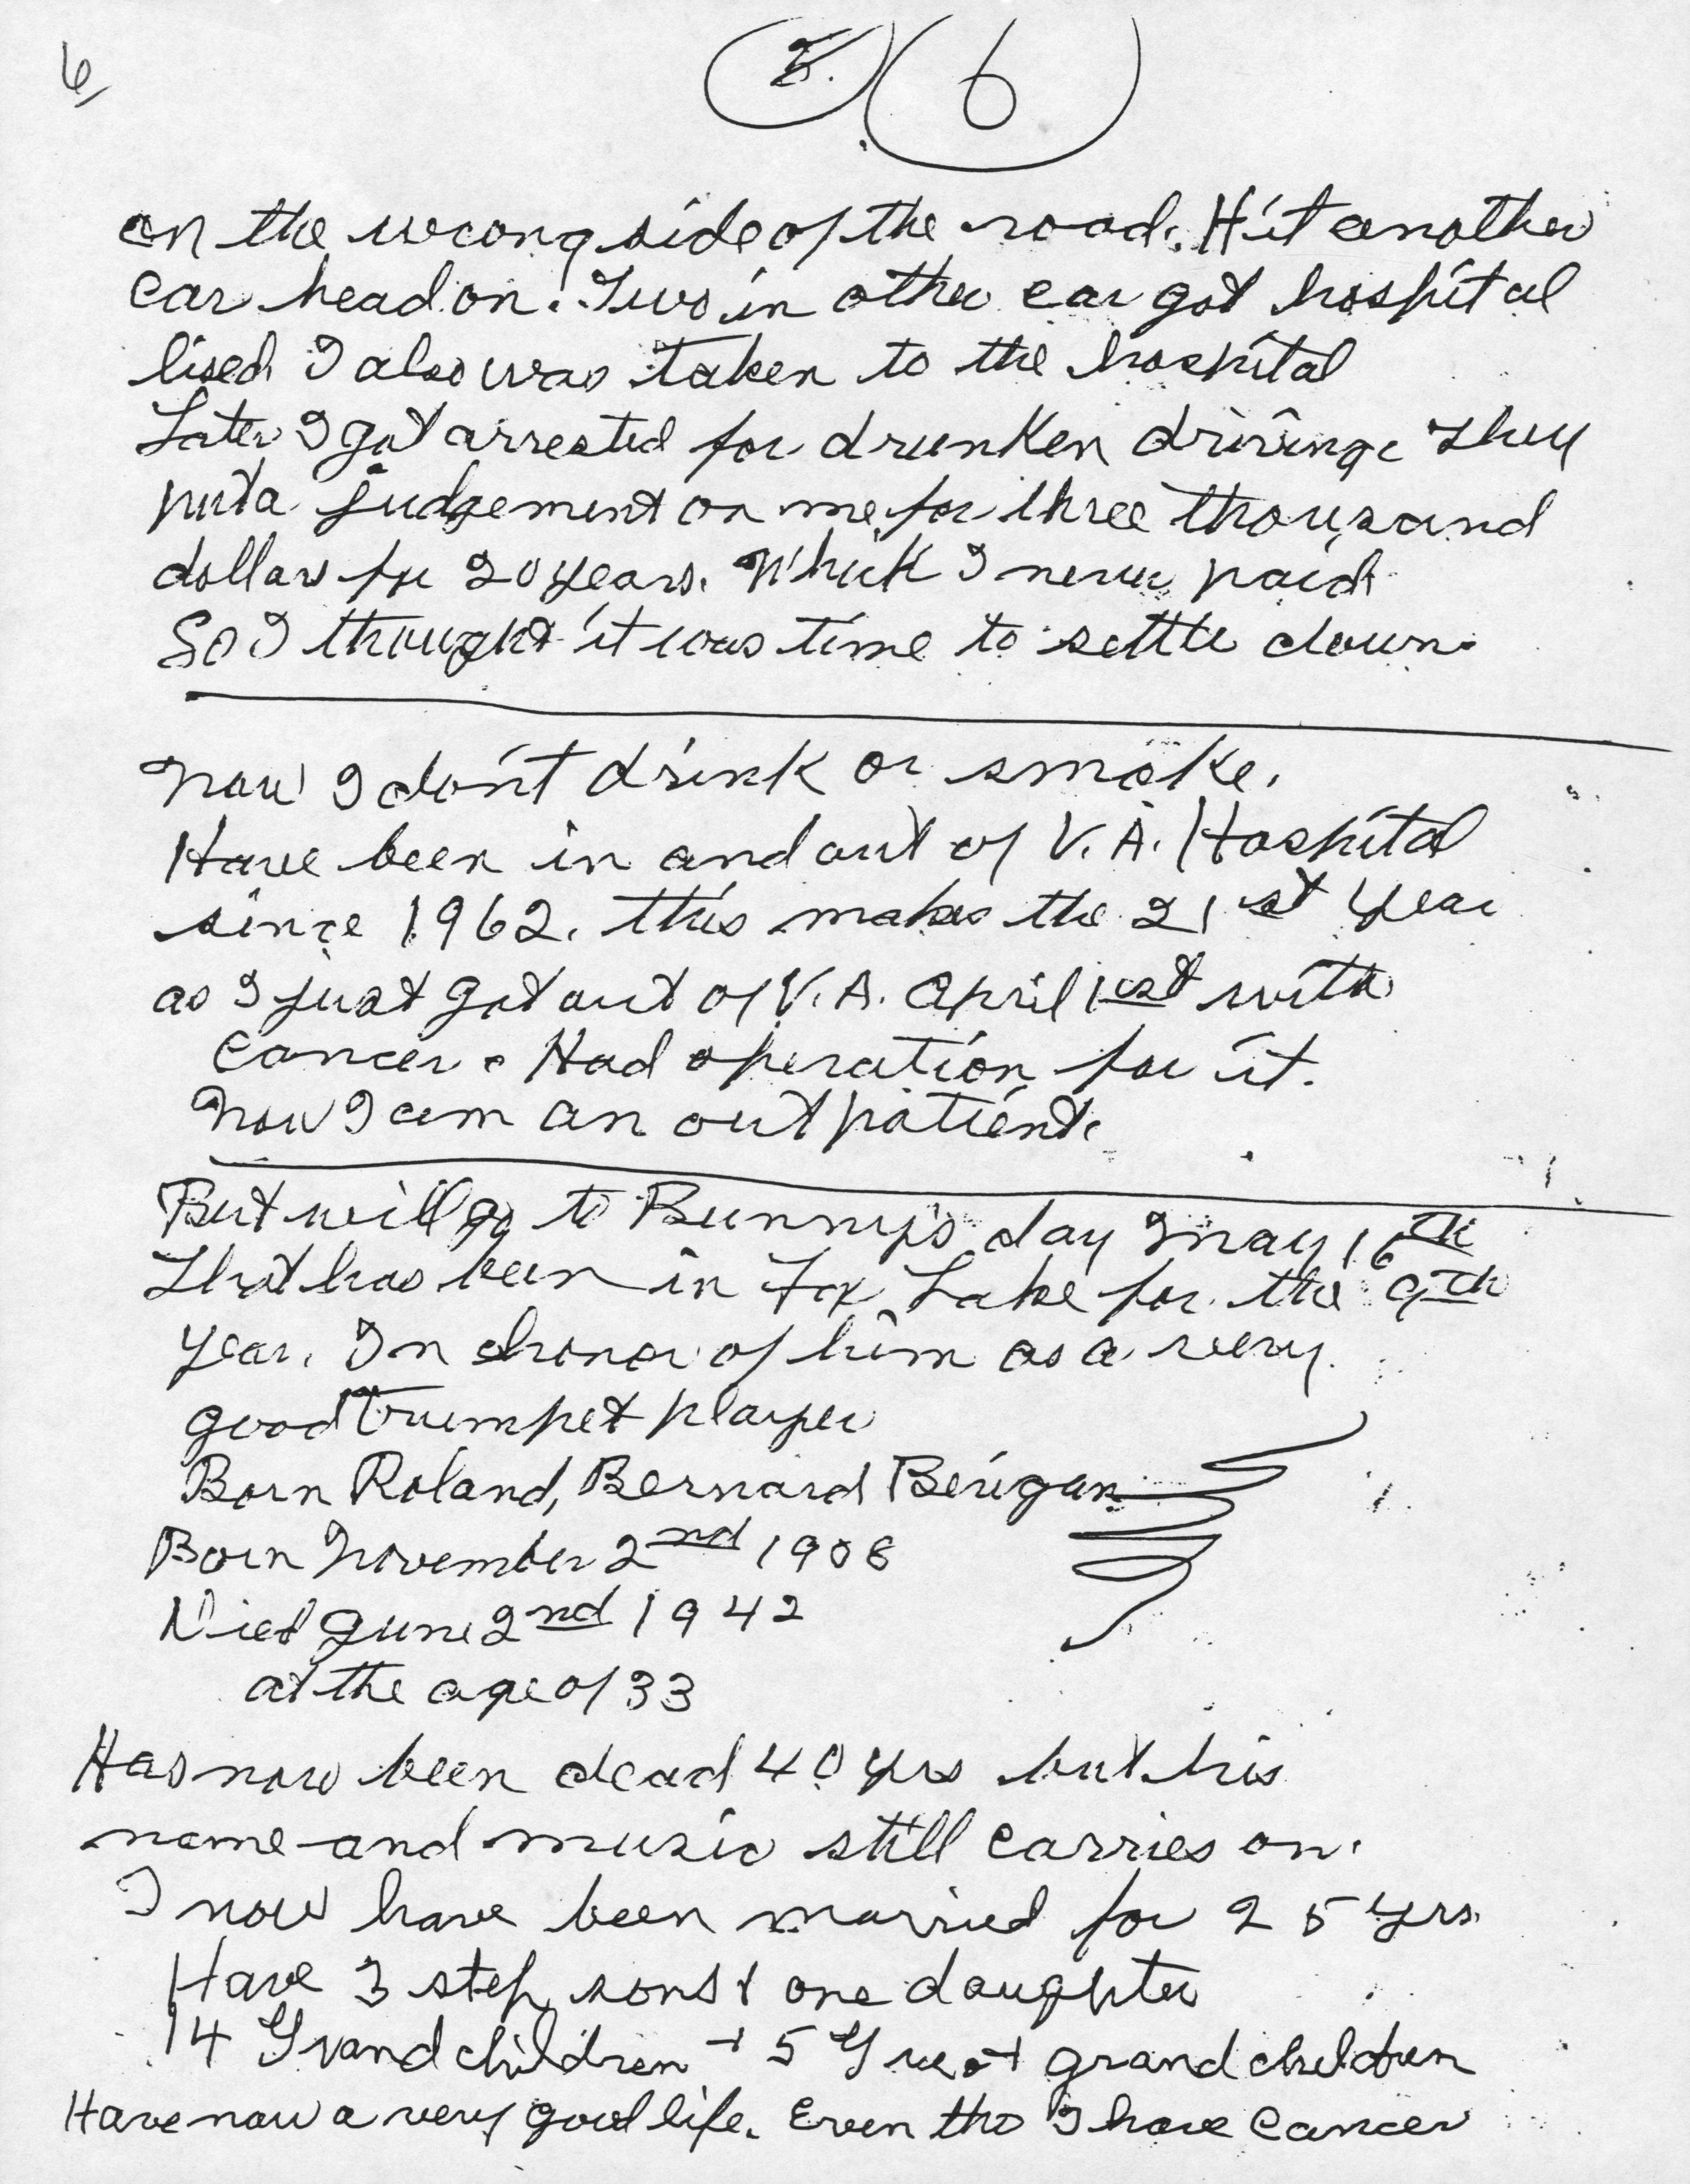 6
6
on the wrong side of the road. Hit another
car head on. Two in other car got hospital
lised I also was taken to the hospital
Later I got arrested for drunken driving. They
put a judgement on me for three thousand
dollars for 20 years. Which I never paid
So I thought it was time to settle down.
Now I don't drink or smoke.
Have been in and out of V.A. Hospital
since 1962. this makes the 21st year
as I just got out of V.A. April 1st with
cancer. Had operation for it.
Now I am an out patient.
But will go to Bunny's day May 16th
That has been in Fox Lake for the 9th
year. In honor of him as a very
good trumpet player
Born Roland, Bernard Berigan
Born November 2nd 1908
Died June 2nd 1942
at the age of 33
Has now been dead 40 yrs but his
name and music still carries on.
I now have been married for 25 yrs.
Have 3 step sons & one daughter
14 Grand children + 5 Great grand children
Have now a very good life. Even tho I have cancer